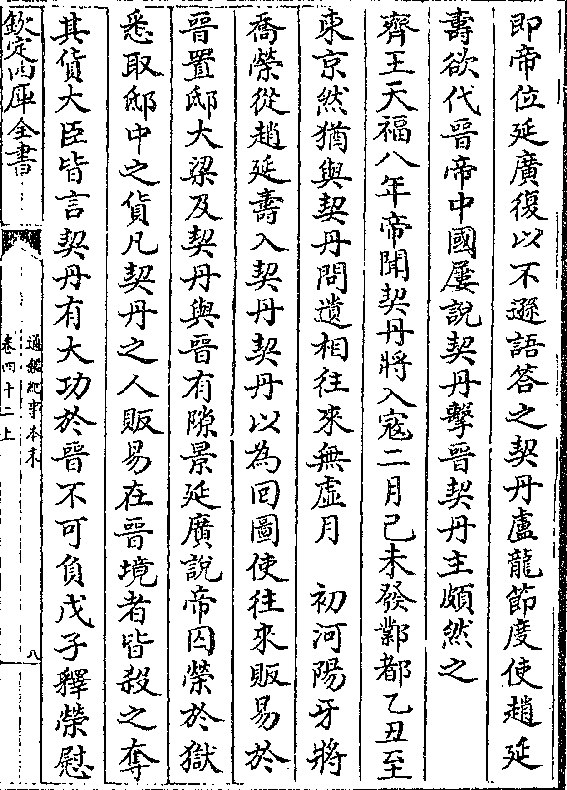 即帝位延廣復以不遜語答之契丹盧龍節度使趙延
壽欲代晉帝中國屢說契丹擊晉契丹主頗然之
齊王天福八年帝聞契丹將入寇二月己未發鄴都乙丑至
東京然猶與契丹問遺相往來無虛月　初河陽牙將
喬榮從趙延壽入契丹契丹以為回圖使往來販易於
晉置邸大梁及契丹與晉有隙景延廣說帝囚榮於獄
悉取邸中之貨凡契丹之人販易在晉境者皆殺之奪
其貨大臣皆言契丹有大功於晉不可負戊子釋榮慰
欽定四庫全書
通鑑紀事本末
卷四十二上
八